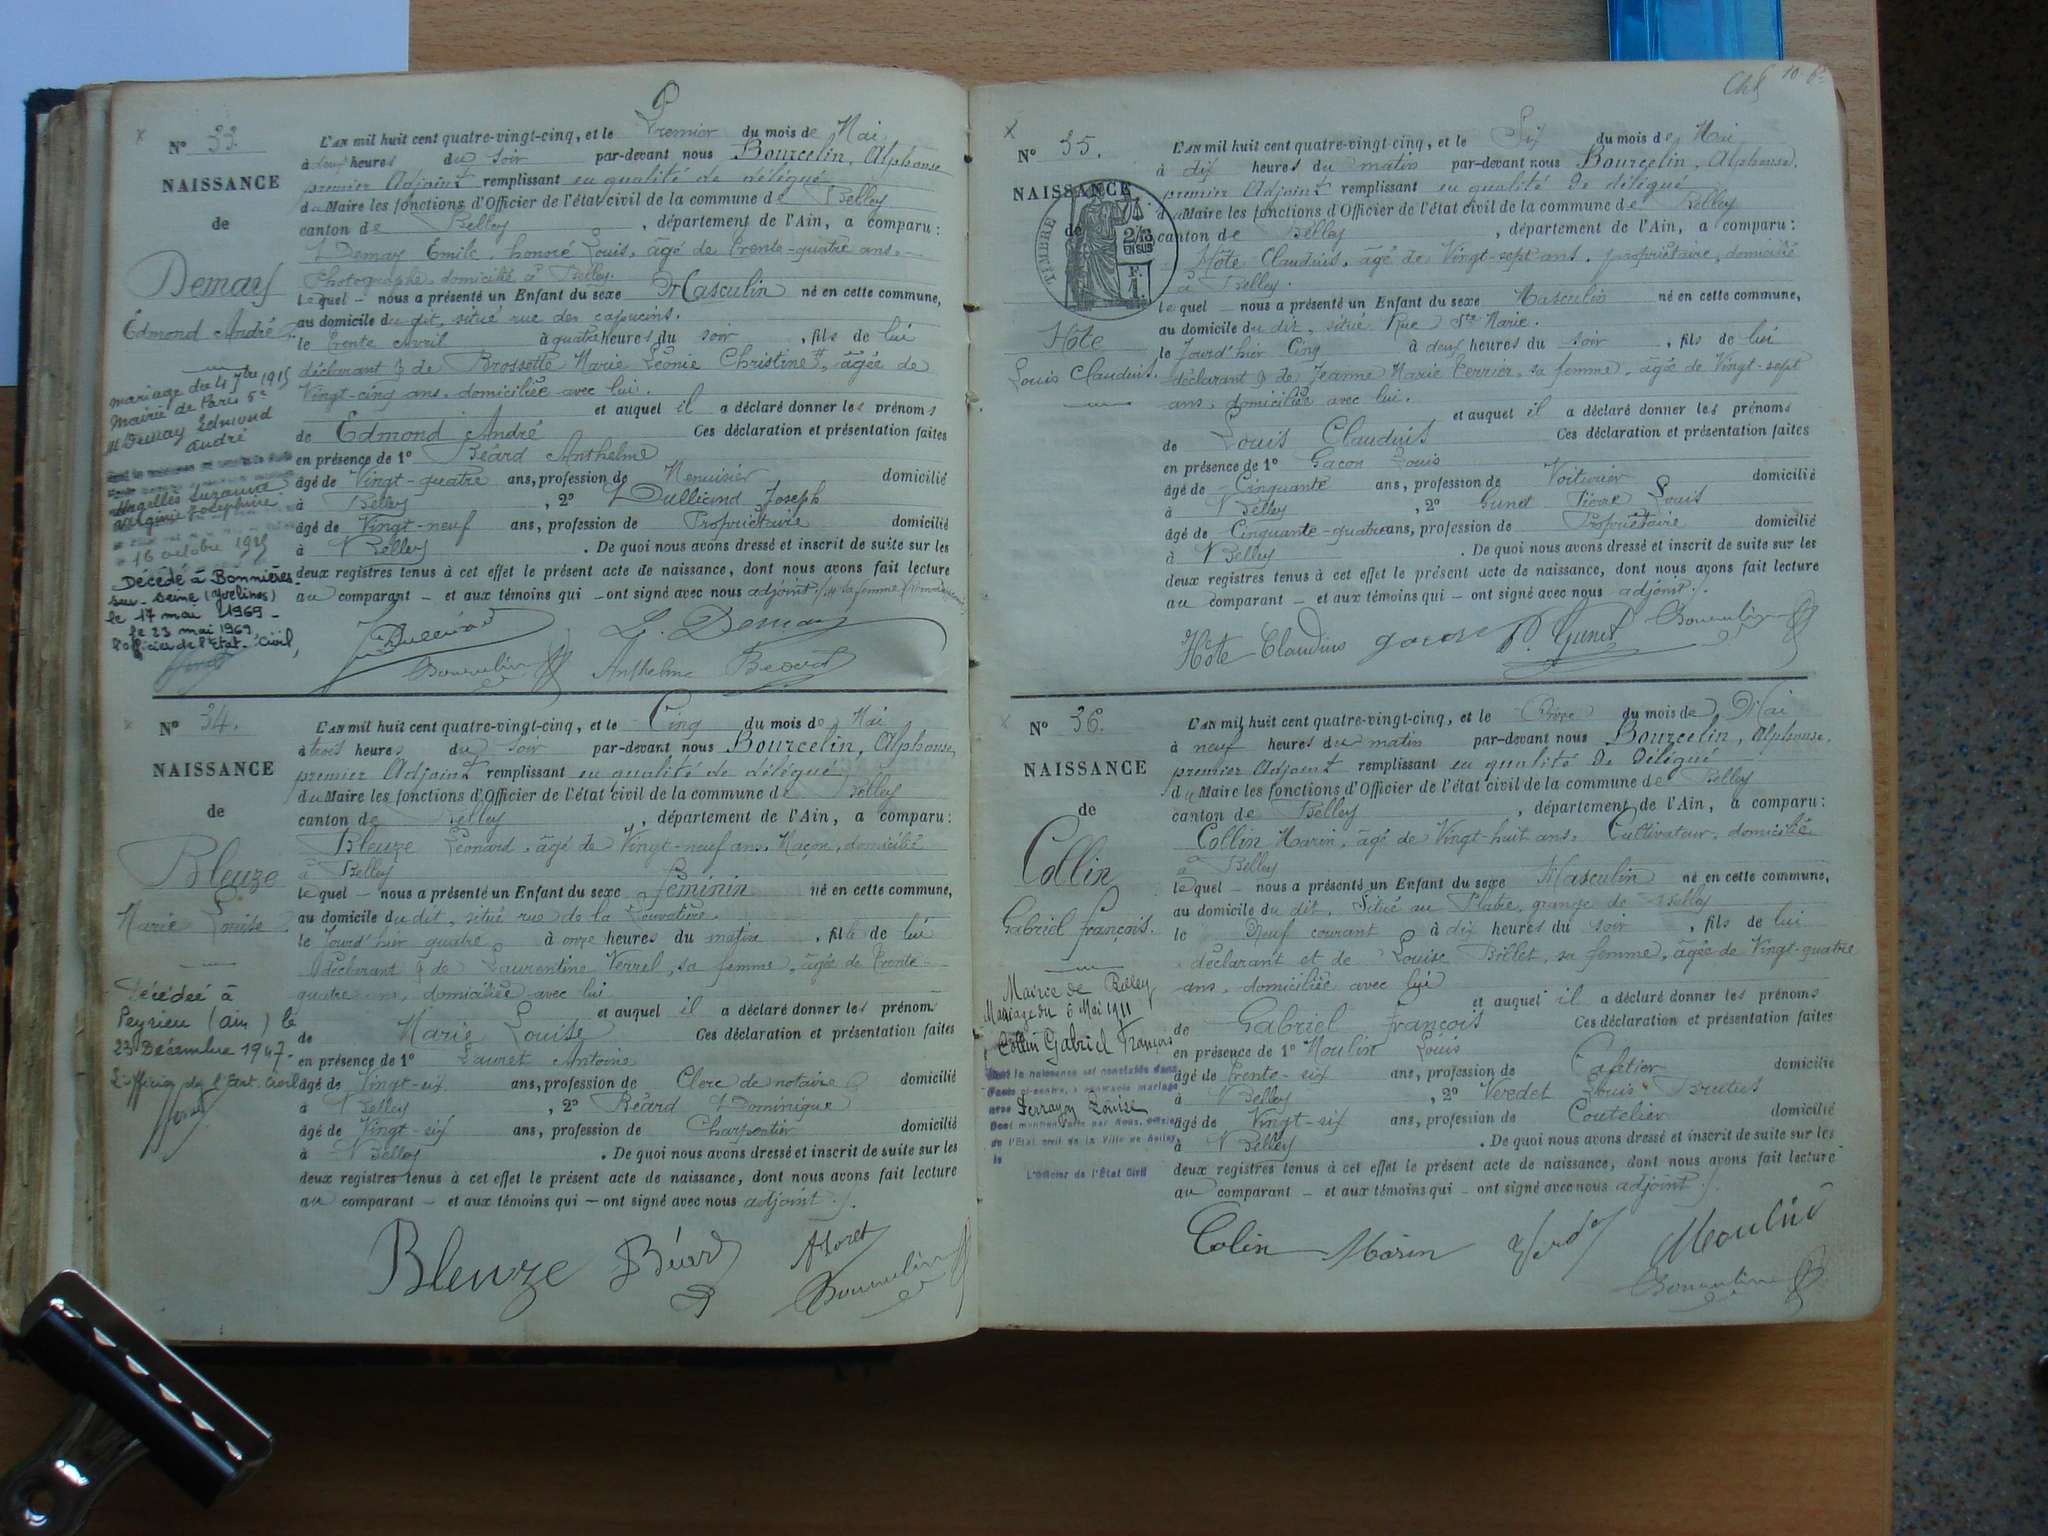 N° 33.
NAISSANCE
de
Demay
Edmond André
mariage du 4 7bre 1915
Mairie de Paris 5e
M Demay Edmond
André
Suzanne
Joséphine
16 octobre 1915
Décédé à Bonnières-
sur-Seine (Yvelines)
le 17 mai 1969-
le 23 mai 1969
l'officier de l'Etat-Civil,
L'AN mil huit cent quatre-vingt-cinq, et le Premier du mois de Mai
à deux heures du soir par-devant nous Bourcelin, Alphonse
premier Adjoint remplissant en qualité de délégué
du Maire les fonctions d'Officier de l'état civil de la commune de Belley
canton de Belley, département de l'Ain, a comparu:
Demay Emile, honoré Louis, âgé de trente-quatre ans,
Photographe, domicilié à Belley.
lequel – nous a présenté un Enfant du sexe Masculin né en cette commune,
au domicile du dit, situé rue des capucins.
le trente Avril à quatre heures du soir, fils de lui
déclarant & de Brossette Marie Léonie Christine #, âgée de
Vingt-cinq ans, domiciliée avec lui.
et auquel il a déclaré donner les prénoms
de Edmond André Ces déclaration et présentation faites
en présence de 1° Béard Anthelme
âgé de Vingt-quatre ans, profession de Menuisier domicilié
à Belley, 2° Dullicand Joseph
âgé de Vingt-neuf ans, profession de Propriétaire domicilié
à Belley. De quoi nous avons dressé et inscrit de suite sur les
deux registres tenus à cet effet le présent acte de naissance, dont nous avons fait lecture
au comparant – et aux témoins qui – ont signé avec nous adjoint./. # sa femme
E. Demay
Bourcelin Anthelme Béard
N° 34.
NAISSANCE
de
Bleuze
Marie Louise
Décédée à
Peyrieu (ain) le
23 Décembre 1947.
L'officier de l'Etat-Civil
L'AN mil huit cent quatre-vingt-cinq, et le Cinq du mois de Mai
à trois heures du soir par-devant nous Bourcelin, Alphonse,
premier Adjoint remplissant en qualité de délégué
du Maire les fonctions d'Officier de l'état civil de la commune de Belley
canton de Belley, département de l'Ain, a comparu:
Bleuze Léonard, âgé de Vingt-neuf ans, Maçon, domicilié
à Belley
lequel – nous a présenté un Enfant du sexe féminin né en cette commune,
au domicile du dit, situé rue de la Louvatière.
le Jourd'hier quatre à onze heures du matin, fille de lui
déclarant & de Laurentine Verrel, sa femme, âgée de trente-
quatre ans, domiciliée avec lui
et auquel il a déclaré donner les prénoms
de Marie Louise Ces déclaration et présentation faites
en présence de 1° Lauret Antoine
âgé de Vingt-six ans, profession de Clerc de notaire domicilié
à Belley, 2° Béard Dominique
âgé de Vingt-six ans, profession de Charpentier domicilié
à Belley. De quoi nous avons dressé et inscrit de suite sur les
deux registres tenus à cet effet le présent acte de naissance, dont nous avons fait lecture
au comparant – et aux témoins qui – ont signé avec nous adjoint./.
Bleuze Béard
Bourcelin
N° 35.
NAISSANCE
de
TIMBRE
2/10
EN SUS
1 F.
Hôte
Louis Claudius.
L'AN mil huit cent quatre-vingt-cinq, et le Six du mois de Mai
à dix heures du matin par-devant nous Bourcelin, Alphonse,
premier Adjoint remplissant en qualité de délégué
du Maire les fonctions d'Officier de l'état civil de la commune de Belley
canton de Belley, département de l'Ain, a comparu:
Hôte Claudius, âgé de Vingt-sept ans, propriétaire, domicilié
à Belley.
lequel – nous a présenté un Enfant du sexe Masculin né en cette commune,
au domicile du dit, situé Rue Ste Marie.
le Jourd'hier Cinq à deux heures du soir, fils de lui
déclarant & de Jeanne Marie Perrier, sa femme, âgée de Vingt-sept
ans, domiciliée avec lui.
et auquel il a déclaré donner les prénoms
de Louis Claudius Ces déclaration et présentation faites
en présence de 1° Gacon Louis
âgé de Cinquante ans, profession de Voiturier domicilié
à Belley, 2° Gunet Pierre Louis
âgé de Cinquante-quatre ans, profession de Propriétaire domicilié
à Belley. De quoi nous avons dressé et inscrit de suite sur les
deux registres tenus à cet effet le présent acte de naissance, dont nous avons fait lecture
au comparant – et aux témoins qui – ont signé avec nous adjoint./.
Hôte Claudius gacon P. Gunet Bourcelin
N° 36.
NAISSANCE
de
Collin
Gabriel françois.
Mairie de Belley
Mariage du 6 Mai 1911
Collin Gabriel François
dont la naissance est constatée dans
l'acte ci-contre, a contracté mariage
avec Ferrayon Louise
Dont mention faite par Nous, officier
de l'Etat civil de la Ville de Belley
le
L'Officier de l'État Civil
L'AN mil huit cent quatre-vingt-cinq, et le Onze du mois de Mai
à neuf heures du matin par-devant nous Bourcelin, Alphonse,
premier Adjoint remplissant en qualité de délégué
du Maire les fonctions d'Officier de l'état civil de la commune de Belley
canton de Belley, département de l'Ain, a comparu:
Collin Marin, âgé de Vingt-huit ans, Cultivateur, domicilié
à Belley
lequel – nous a présenté un Enfant du sexe Masculin né en cette commune,
au domicile du dit, Situé au Platre, grange de Belley
le Neuf courant à dix heures du soir, fils de lui
déclarant et de Louise Billet, sa femme, âgée de Vingt-quatre
ans, domiciliée avec lui
et auquel il a déclaré donner les prénoms
de Gabriel françois Ces déclaration et présentation faites
en présence de 1° Moulin Louis
âgé de trente-six ans, profession de Cafetier domicilié
à Belley, 2° Veredet Louis Brutus
âgé de Vingt-six ans, profession de Coutelier domicilié
à Belley. De quoi nous avons dressé et inscrit de suite sur les
deux registres tenus à cet effet le présent acte de naissance, dont nous avons fait lecture
au comparant – et aux témoins qui – ont signé avec nous adjoint./.
Colin Marin Moulin
Bourcelin